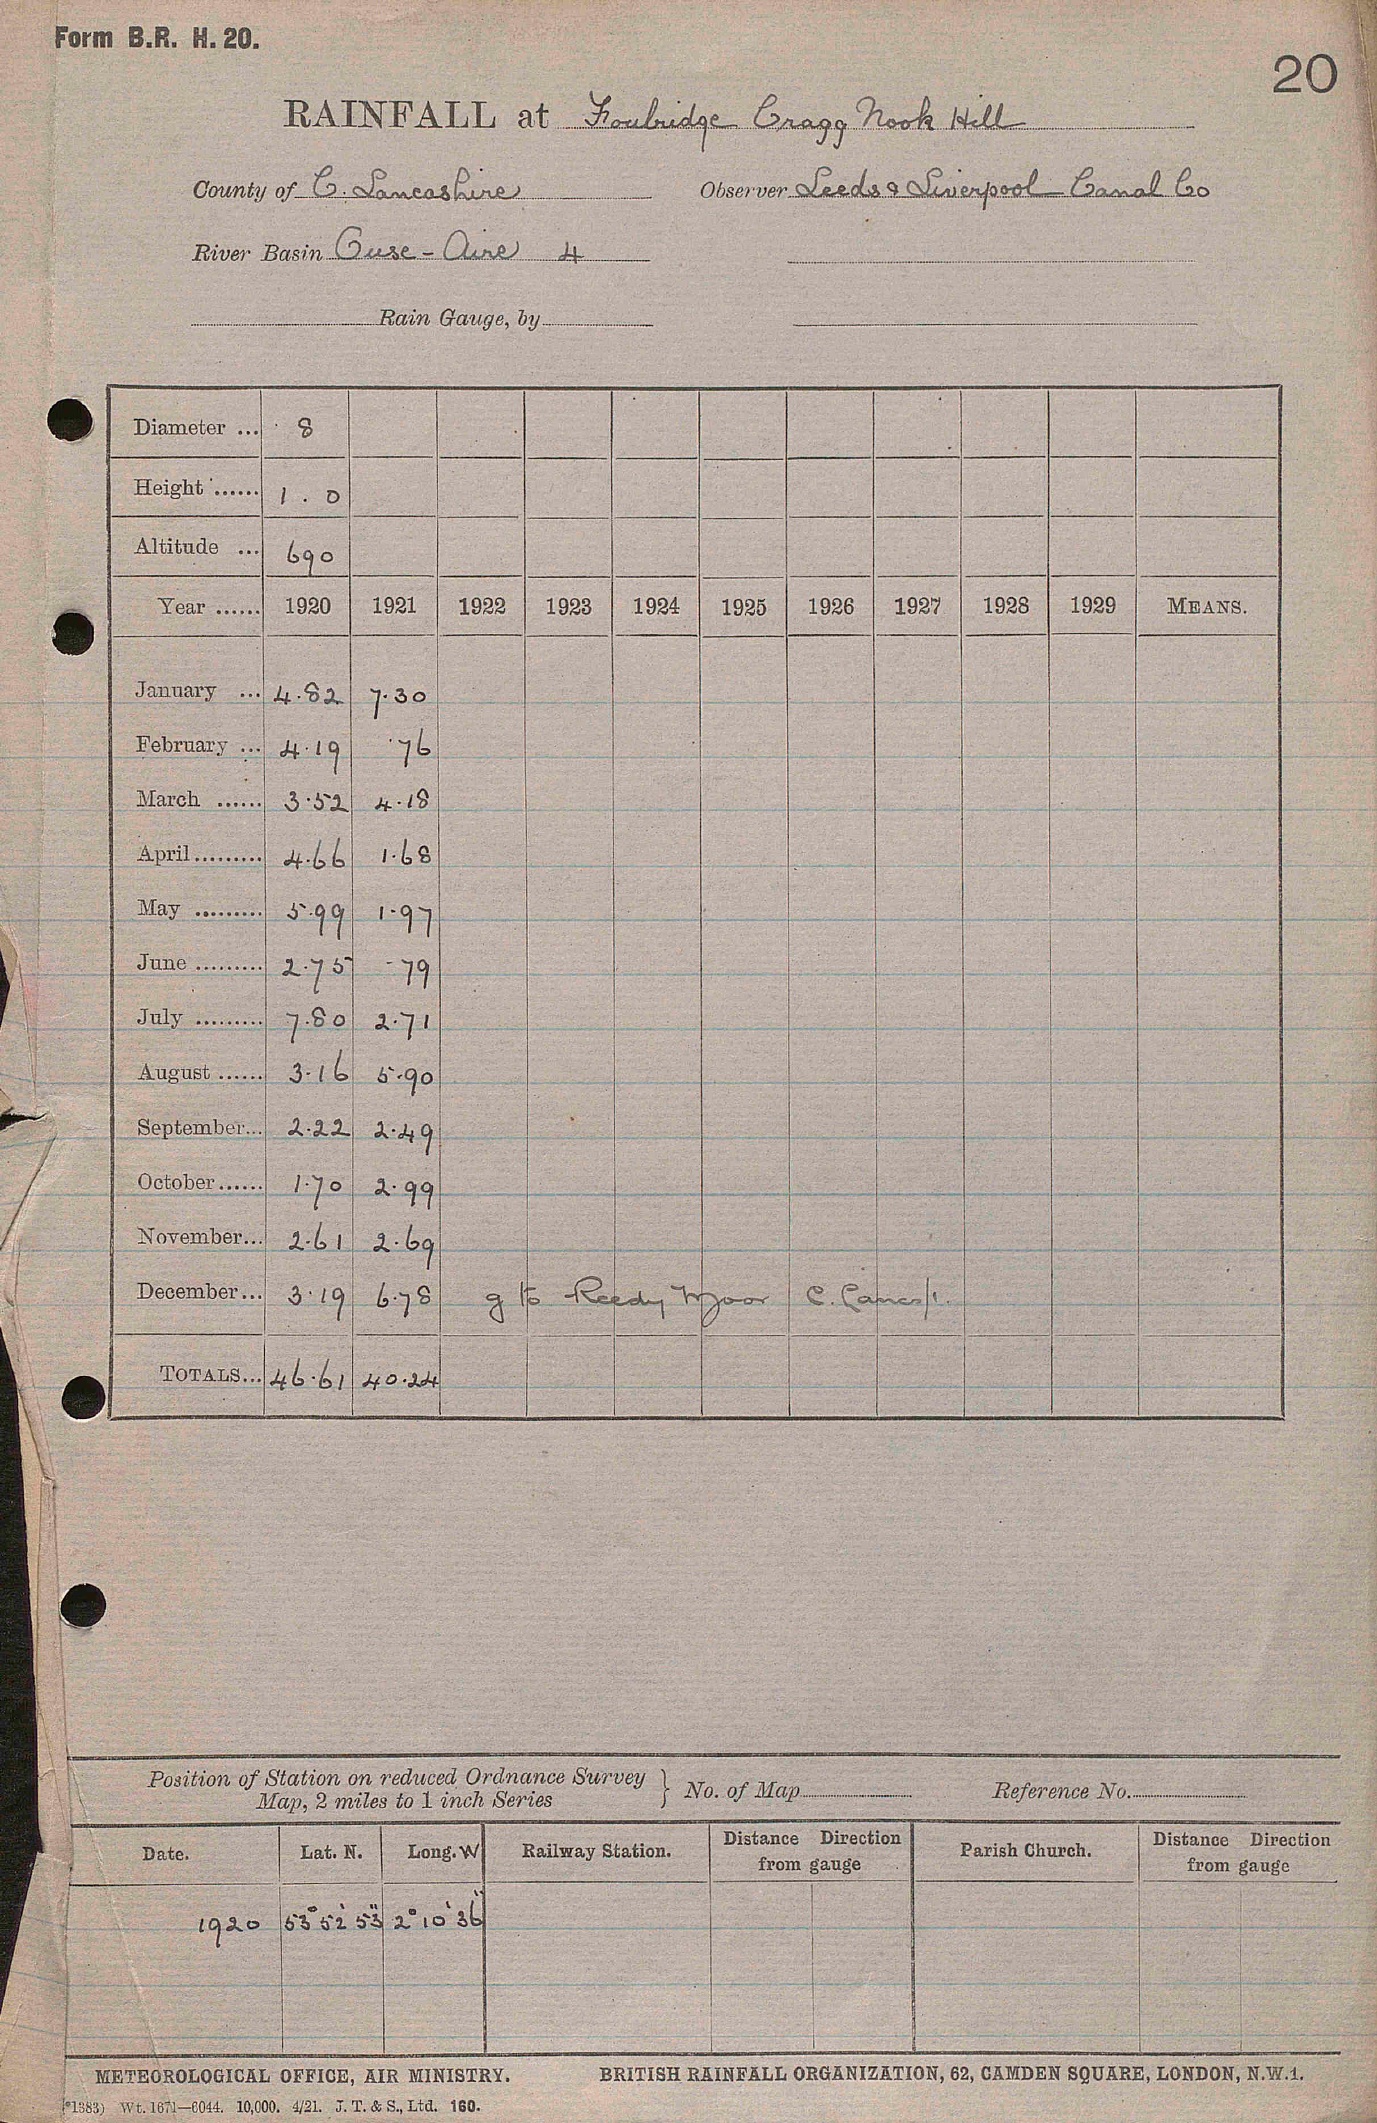 Form B.R. H. 20.
20
RAINFALL at Foulridge Cragg Nook Hill
County of C. Lancashire Observer Leeds & Liverpool Canal Co
River Basin Ouse - Aire 4
Rain Gauge, by
Diameter ... 8
Height ...... 1 . 0
Altitude ... 690
Year ...... 1920 1921 1922 1923 1924 1925 1926 1927 1928 1929 MEANS.
January ... 4.82 7.30
February ... 4.19 .76
March ...... 3.52 4.18
April ......... 4.66 1.68
May ......... 5.99 1.97
June ......... 2.75 .79
July ......... 7.80 2.71
August ...... 3.16 5.90
September... 2.22 2.49
October ...... 1.70 2.99
November... 2.61 2.69
December... 3.19 6.78 g to Reedy Moor C. Lancs/.
TOTALS... 46.61 40.24
Position of Station on reduced Ordnance Survey
Map, 2 miles to 1 inch Series } No. of Map Reference No.
Date. Lat. N. Long. W Railway Station. Distance Direction from gauge Parish Church. Distance Direction from gauge
1920 53° 52' 53" 2° 10' 36"
METEOROLOGICAL OFFICE, AIR MINISTRY. BRITISH RAINFALL ORGANIZATION, 62, CAMDEN SQUARE, LONDON, N.W.1.
(*1383) Wt. 1671—6044. 10,000. 4/21. J. T. & S., Ltd. 160.